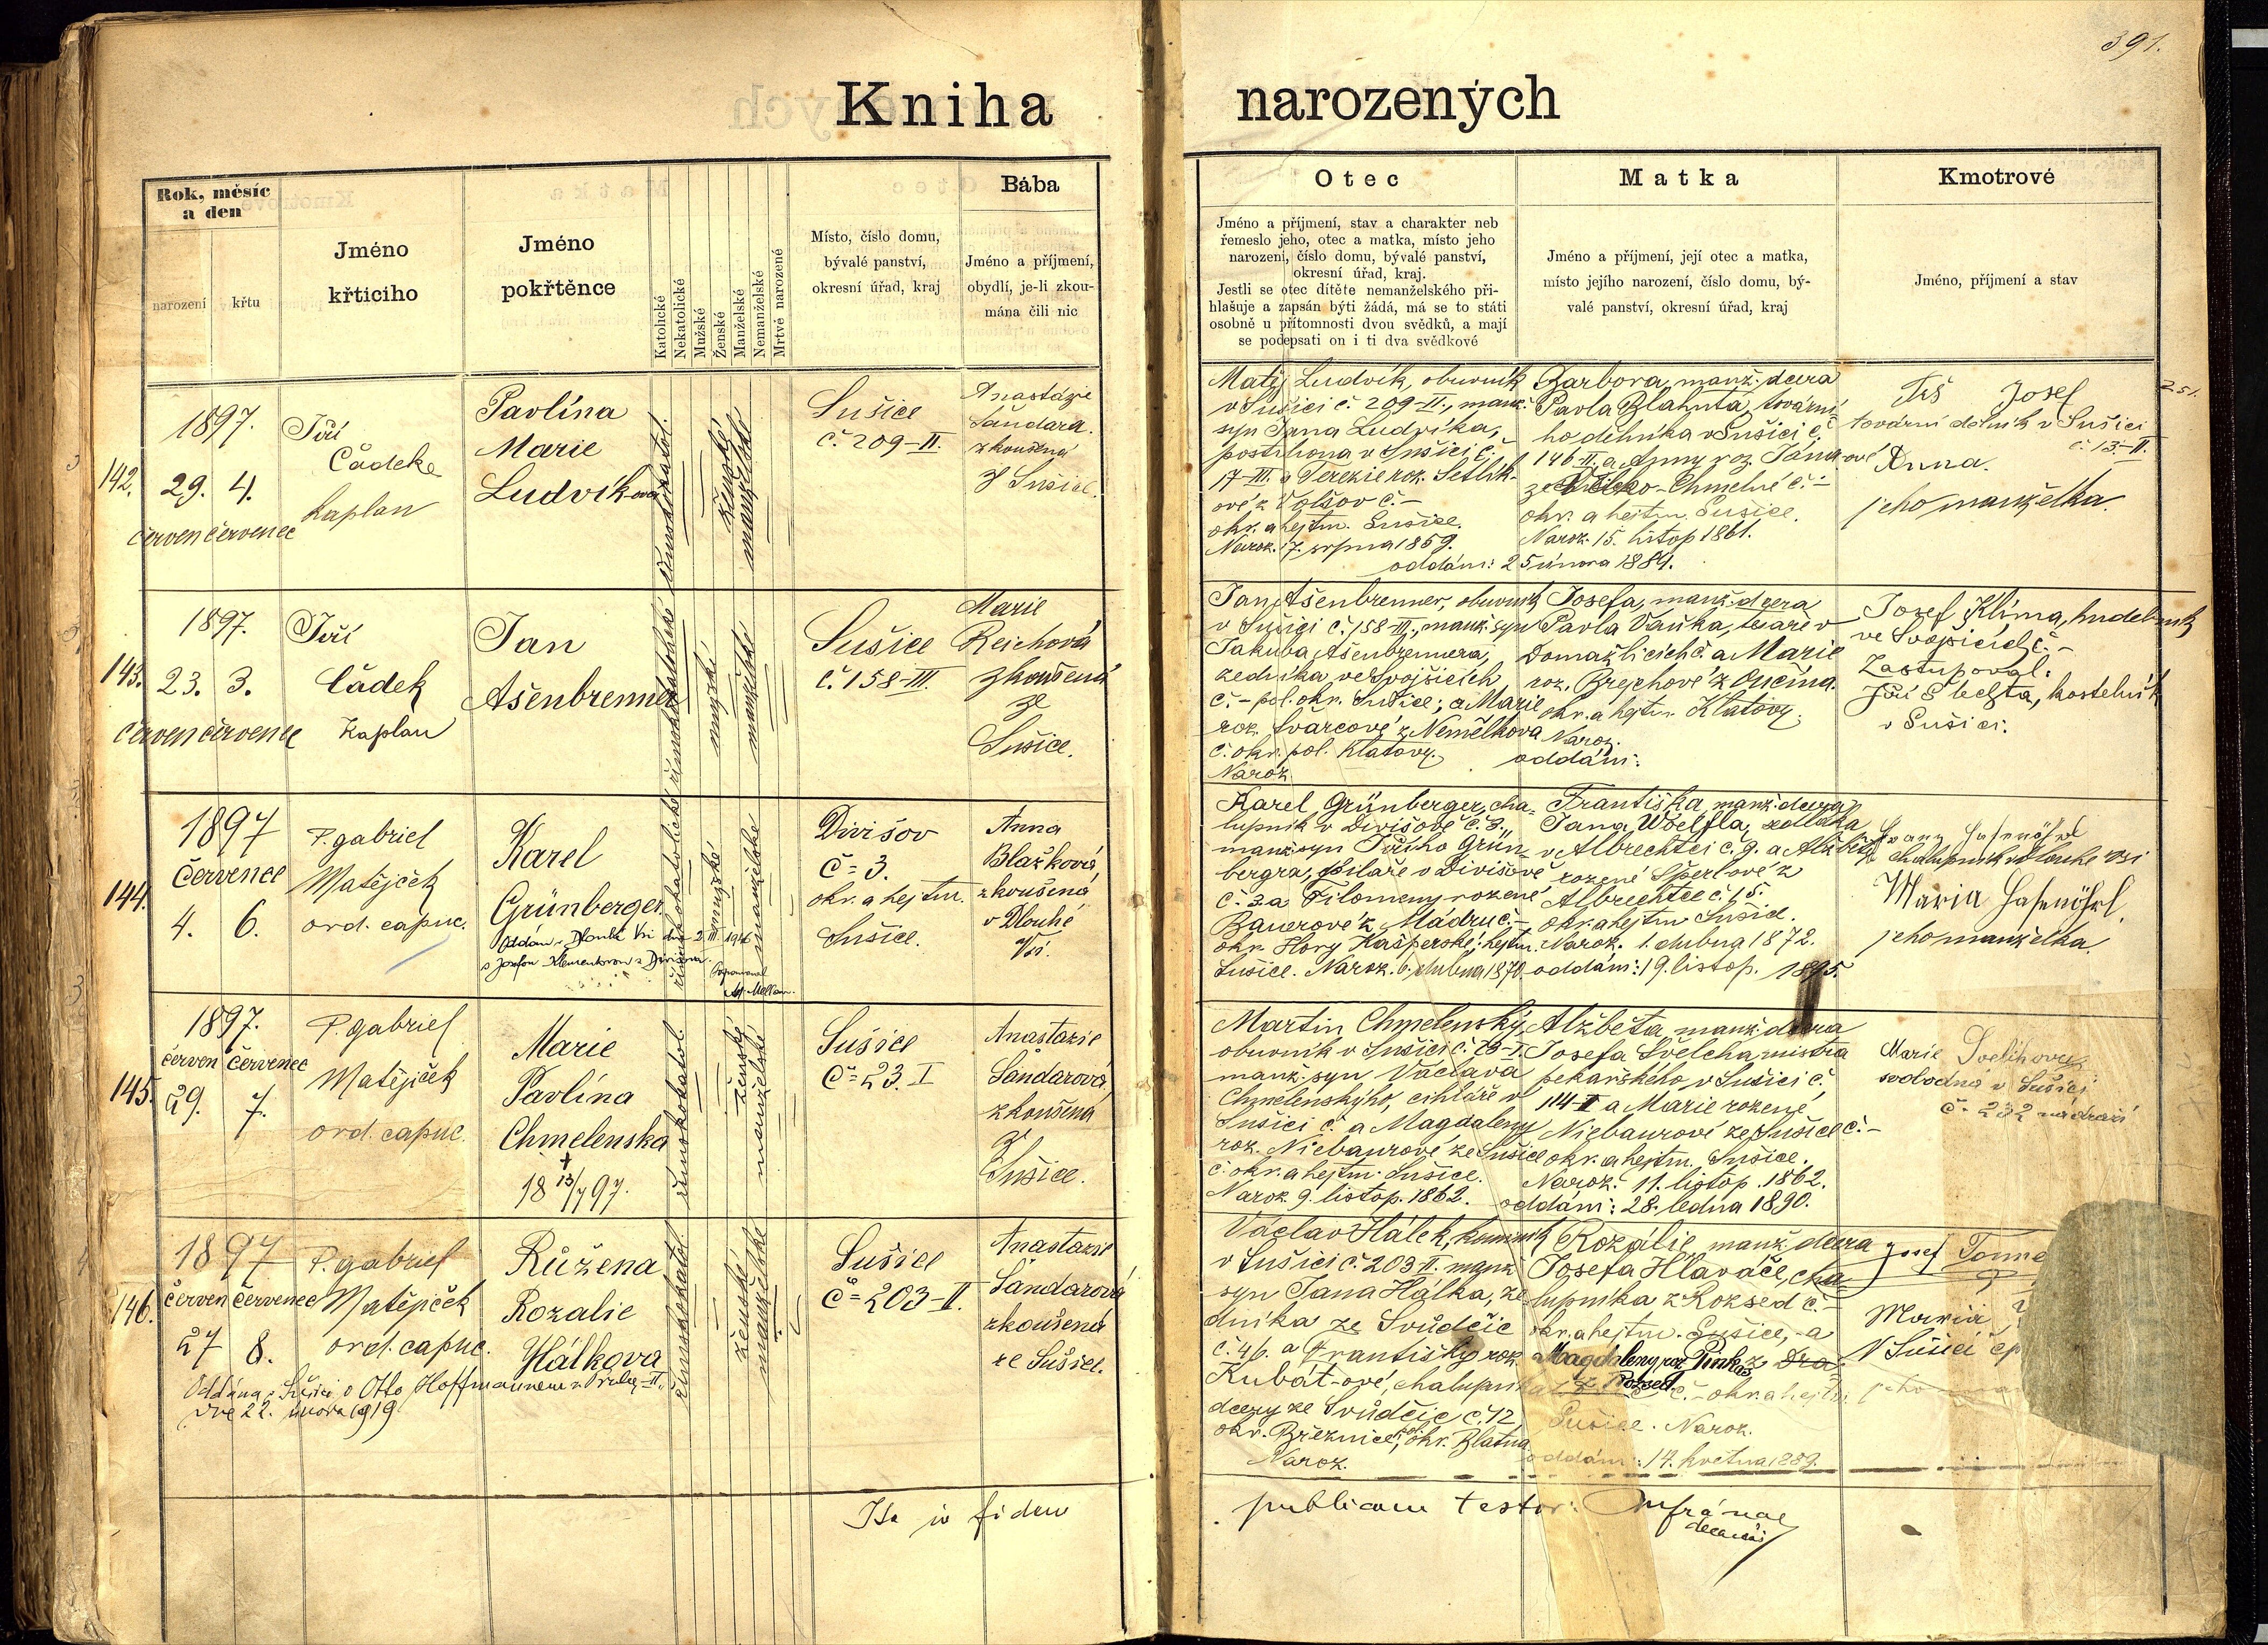 391.
Kniha narozených
Rok, měsíc
a den
narození
křtu
Jméno
křticiho
Jméno
pokřtěnce
Katolické
Nekatolické
Mužské
Ženské
Manželské
Nemanželské
Mrtvě narozené
Místo, číslo domu,
bývalé panství,
okresní úřad, kraj
Bába
Jméno a příjmení,
obydlí, je-li zkou-
mána čili nic
Otec
Jméno a příjmení, stav a charakter neb
řemeslo jeho, otec a matka, místo jeho
narození, číslo domu, bývalé panství,
okresní úřad, kraj.
Jestli se otec dítěte nemanželského při-
hlašuje a zapsán býti žádá, má se to státi
osobně u přítomnosti dvou svědků, a mají
se podepsati on i ti dva svědkové
Matka
Jméno a příjmení, její otec a matka,
místo jejího narození, číslo domu, bý-
valé panství, okresní úřad, kraj
Kmotrové
Jméno, příjmení a stav
142.
1897.
29. 4.
červen červenec
Jiří
Čádek
kaplan
Pavlína
Marie
Ludvíkova
římskokatol.
ženské
manželské
Sušice
č. 209-II.
Anastázie
Šandara.
zkoušená
z Sušice.
Matěj Ludvík, obuvník
v Sušici č. 209-II., manž.
syn Jana Ludvíka,
postihona v Sušici č.
17-III. a Terezie roz. Setlík-
ové z Volšov č. -
okr. a hejtm. Sušice.
Naroz. 17. srpna 1859.
Barbora, manž. dcera
Pavla Blahuta, tovární-
ho dělníka v Sušici č.
146-II. a Anny roz. Jána-ové
Chmelné č. -
okr. a hejtm. Sušice.
Naroz. 15. listop 1861.
oddáni: 25 února 1884.
Josef
tovární dělník v Sušici
č. 13-II.
Anna.
jeho manželka.
251.
143.
1897.
23. 3.
červen červenec
Jiří
Čádek
kaplan
Jan
Ašenbrenner
římskokatolické
mužské
manželské
Sušice
č. 158-III.
Marie
Rejchová
zkoušená
ze
Sušice.
Jan Ašenbrenner, obuvník
v Sušici č. 158-III., manž. syn
Jakuba Ašenbrennera,
zedníka, ve Svojšicích
č. - pol. okr. Sušice; a Marie
roz. Švarcové z Nemělkova
č. okr. pol. Klatovy.
Naroz.
Josefa, manž. dcera
Pavla Vaňka, tesaře v
Domažlicích č. a Marie
roz. Brejchové z Ončína.
okr. a hejtm. Klatovy.
Naroz.
oddáni:
Josef Klíma, hudebník
ve Svojšicích č. -
Zastupoval:
Jiří Šbelta, kostelník
v Sušici.
144.
1897
červenec
4. 6.
P. gabriel
Matějček
ord. capuc.
Karel
Grünberger
Oddán v Dlouhé Vsi dne 2. III. 1946
s Josefou Klementovou z Divišova.
římskokatolické
mužské
manželské
Divišov
č. 3.
okr. a hejtm.
Sušice.
Anna
Blažková,
zkoušená
v Dlouhé
Vsi.
Karel Grünberger, cha-
lupník v Divišově č. 3.,
manž. syn Jiřího Grün-
bergra, pilaře v Divišově
č. 3 a Filomeny rozené
Bauerové z Mádru č. -
okr. Hory Kašperské; hejtm.
Sušice. Naroz. 6. dubna 1870
Františka, manž. dcera
Jana Wölfla, sedláka
v Albrechtci č. 9. a Alžběty
rozené Šperlové z
Albrechtce č. 15.
okr. a hejtm. Sušice.
Naroz. 1. dubna 1872.
oddáni: 19. listop. 1895.
Franz Hasenöhrl
chalupník v Dlouhé vsi
Maria Hasenöhrl,
jeho manželka.
145.
1897.
červen červenec
29. 7.
P. gabriel
Matějíček
ord. capuc.
Marie
Pavlína
Chmelenska
+
18 13/7 97.
římskokatol.
ženský
manželské
Sušice
č. 23. I
Anastazie
Šandarová,
zkoušená
z
Sušice.
Martin Chmelenský,
obuvník v Sušici č. 23-I.
manž. syn Václava
Chmelenskýho, cihláře v
Sušici č. a Magdaleny
roz. Niebaurové ze Sušice
č. okr. a hejtm. Sušice.
Naroz. 9. listop. 1862.
Alžběta, manž. dcera
Josefa Švelcha mistra
pekařského v Sušici č.
114-II a Marie rozené
Niebaurové ze Sušice č. -
okr. a hejtm. Sušice.
Naroz. 11. listop. 1862.
oddáni: 28. ledna 1890.
Marie Svelihova
svobodná v Sušici
č. 232 nádraží
146.
1897
červen červenec
27 8.
P. gabriel
Matějíček
ord. capuc.
Růžena
Rozalie
Hálkova
Oddána v Sušici s Otto Hoffmannem z Prahy-II.,
dne 22. února 1919
římskokatol.
ženské
manželské
Sušice
č. 203-II.
Anastazie
Šandarová
zkoušená
ze Sušice.
Václav Hálek, kominík
v Sušici č. 203 II. manž.
syn Jana Hálka, ze-
dníka ze Svůdčic
č. 46. a Františky roz.
Kubát-ové, chalupníka
dcery ze Svůdčic č. 12,
okr. Březnice, pol. okr. Blatna
Naroz.
Rozálie, manž. dcera
Josefa Hlaváče, cha-
lupníka z Rozsed č. -
okr. a hejtm. Sušice, a
Magdaleny roz. Pinkas z
z Rozsed č. - okr. a hejtm.
Sušice. Naroz.
oddáni: 14. května 1889.
Josef Tonne
Maria
V Sušici čp
jeho
Ita in fidem
publicam testor:
decanus